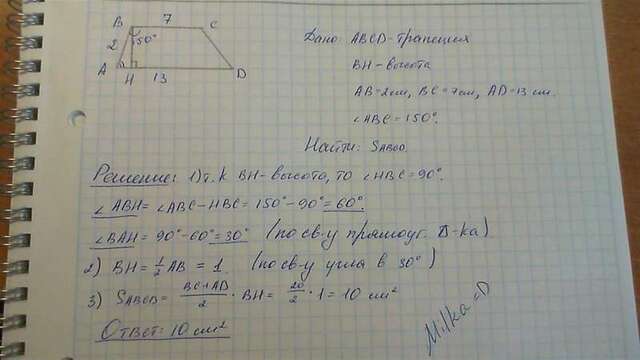 B 7 C
2 150°
A H 13 D
Дано: ABCD - трапеция
BH - высота
AB=2см, BC=7см, AD=13 см.
∠ABC=150°.
Найти: SABCD
Решение: 1) т.к BH - высота, то ∠HBC=90°.
∠ABH=∠ABC-HBC=150°-90°=60°.
∠BAH=90°-60°=30° (по св-у прямоуг. Δ-ка)
2) BH=1/2 AB = 1 (по св-у угла в 30°)
3) SABCD= BC+AD/2 · BH= 20/2 · 1=10 см²
Ответ: 10 см²
Milka=D